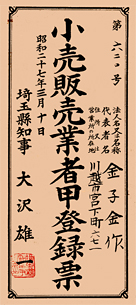 第六二〇号
法人名又は名称
代表者名
住所又は
営業所の所在地
金子金作
川越市宮下町一ノ七一
小売販売業者甲登録票
昭和二十七年三月十日
埼玉県知事 大沢雄一